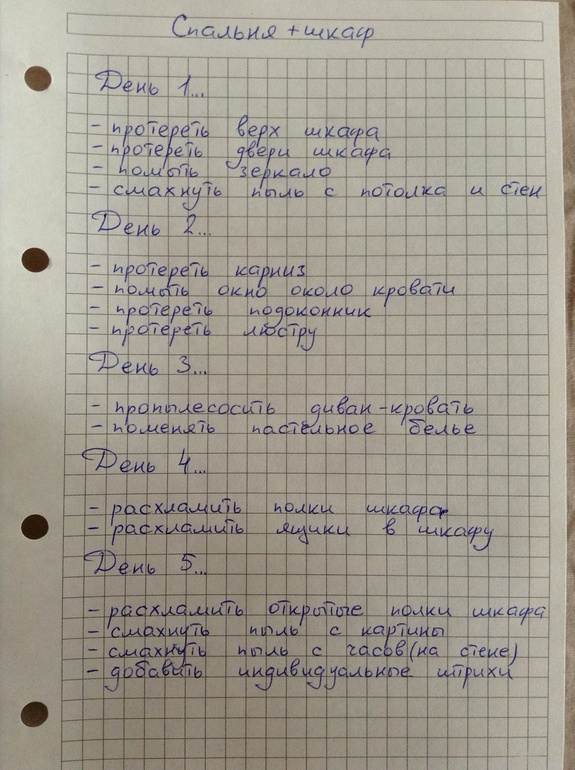 Спальня + шкаф
День 1...
- протереть верх шкафа
- протереть двери шкафа
- помыть зеркало
- смахнуть пыль с потолка и стен
День 2...
- протереть карниз
- помыть окно около кровати
- протереть подоконник
- протереть люстру
День 3...
- пропылесосить диван-кровать
- поменять пастельное белье
День 4...
- расхламить полки шкафа
- расхламить ящики в шкафу
День 5...
- расхламить открытые полки шкафа
- смахнуть пыль с картины
- смахнуть пыль с часов (на стене)
- добавить индивидуальные штрихи